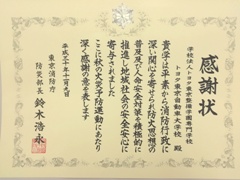 感謝状
学校法人トヨタ東京整備学園専門学校
トヨタ東京自動車大学校 殿
貴学は平素から消防行政に
深い関心を寄せられ防火思想の
普及及び人命安全対策を積極的に
推進し地域社会の安全安心に
寄与されました
ここに秋の火災予防運動にあたり
深く感謝の意を表します
平成三十年十一月九日
東京消防庁
防災部長 鈴木浩永